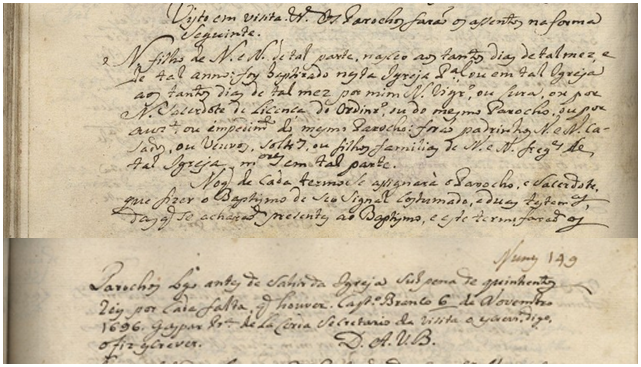 Visto em visita Os Parochos farão os assentos na forma
seguinte.
N. filho de N. e N. de tal parte, nasceo aos tantos dias de tal mez, e
de tal anno: foy baptizado nesta Igreja Pal. ou em tal Igreja
aos tantos dias de tal mez por mim N. Vigro. ou Cura, ou por
N. Sacerdote de Licença do Ordinro. ou do mesmo Parocho, ou por
auza. ou empedimto. do mesmo Parocho: forão padrinhos N. e N. Ca-
sados, ou Veuvos, Soltros, ou filhos familias de N. e N. fregzes de
tal Igreja, mores em tal parte.
No fim de Cada termo se assignará o Parocho, e Sacerdote,
que fizer o Baptismo de seo signal costumado, e duas testemas,
das q. se acharão presentes ao Baptismo, e este termo farão os
Nunz 149
Parochos logo antes de sahir da Igreja sub pena de quinhentos
reis por cada falta, q. houver. Casto. Branco 6 de Novembro
1696. Gaspar de la Coria Secretario da Visita o escrevi, digo,
o fiz escrever. D. A. V. B.